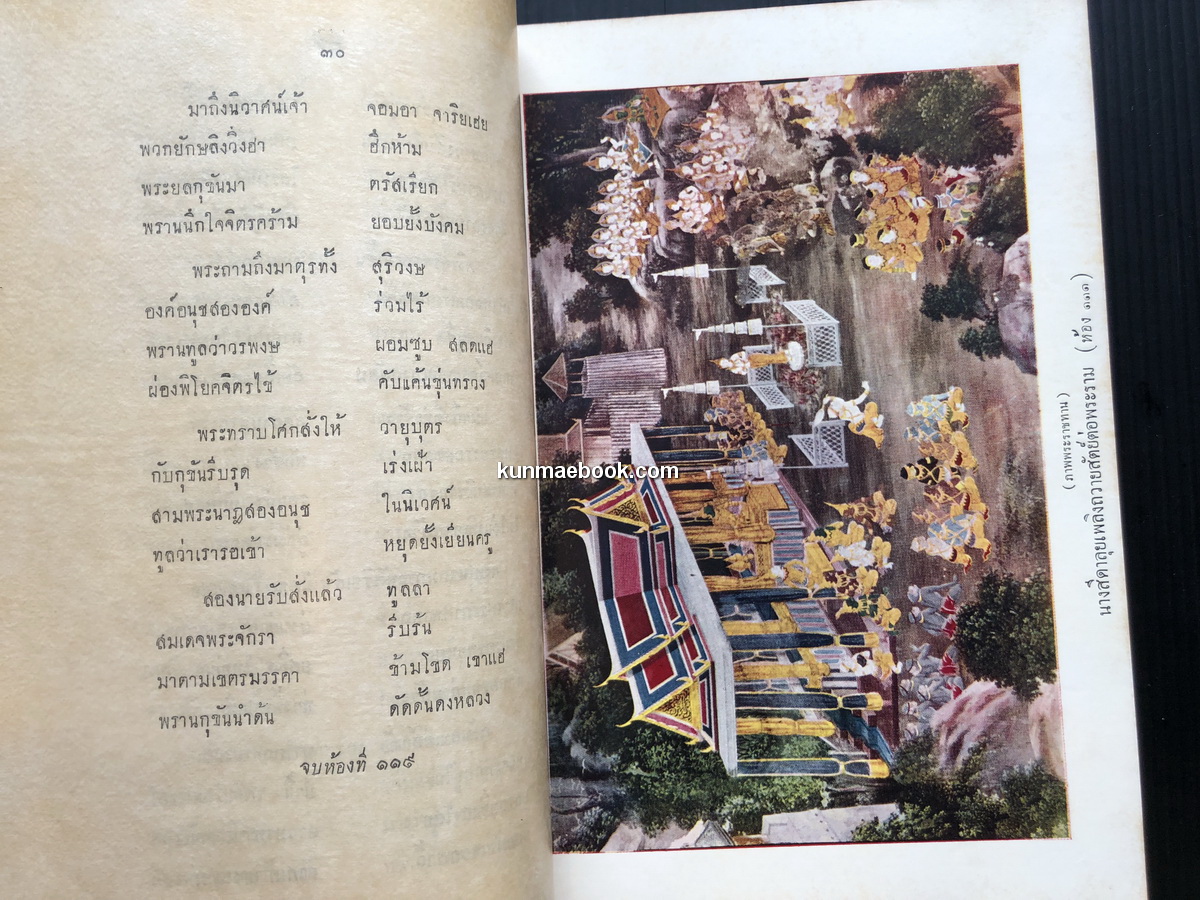 ๓๐
มาถึงนิวาศน์เจ้า จอมอา จาริยเฮย
พวกยักษลิงวิ่งฮา ฮึกห้าม
พระยลกุขันมา ตรัสเรียก
พรานนึกใจจิตรคร้าม ยอบยั้งบังคม
พระถามถึงมาตุรทั้ง สุริวงษ
องค์อนุชสององค์ ร่วมไร้
พรานทูลว่าวรพงษ ผอมซูบ สลดแฮ่
ผ่องพิโยคจิตรไข้ คับแค้นขุ่นทรวง
พระทราบโศกสั่งให้ วายุบุตร
กับกุขันรีบรุด เร่งเฝ้า
สามพระนาฎสองอนุช ในนิเวศน์
ทูลว่าเรารอเช้า หยุดยั้งเยียนครู
สองนายรับสั่งแล้ว ทูลลา
สมเดจพระจักรา รีบร้น
มาตามเขตรมรรคา ข้ามโขด เขาแฮ่
พรานกุขันนำด้น ดัดดั้นดงหลวง
จบห้องที่ ๑๑๙
kunmaebook.com
นางสีดาลุยเพลิงถวายสัตย์ต่อพระราม (ห้อง ๑๑๑)
(ภาพพระราชทาน)